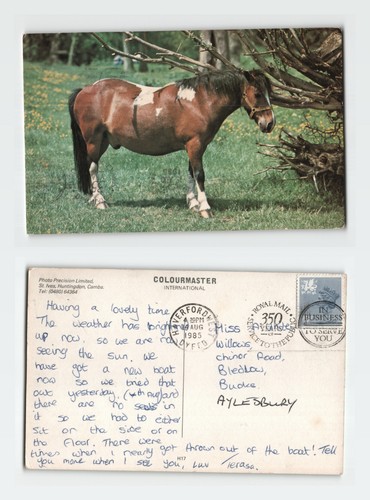 Photo Precision Limited,
St. Ives, Huntingdon, Cambs.
Tel: (0480) 64364
COLOURMASTER
INTERNATIONAL
Having a lovely time.
The weather has brightened
up now, so we are not
seeing the sun. We
have got a new boat
now so we tried that
out yesterday.
there are no seats in
it so we had to either
sit on the side or on
the floor. There were
times when I nearly got thrown out of the boat! Tell
you more when I see you, luv
HAVERFORDWEST
DYFED
1985
ROYAL MAIL
350
YEARS
SERVICE TO THE PUBLIC
IN
BUSINESS
TO SERVE
YOU
Miss
Willows,
Chinor Road,
Bledlow,
Bucks.
AYLESBURY